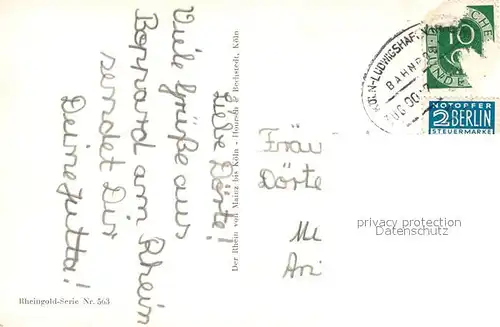 Liebe Dörte!
Viele Grüße aus
Boppard am Rhein
sendet Dir
Deine Jutta!
Der Rhein von Mainz bis Köln - Hoursch & Bechstedt, Köln
Rheingold-Serie Nr. 563
KÖLN-LUDWIGSHAFEN
BAHNPO
ZUG
10
NOTOPFER
2 BERLIN
STEUERMARKE
Fräu
Dörte
Me
privacy protection
Ansichtskarten-Center.de